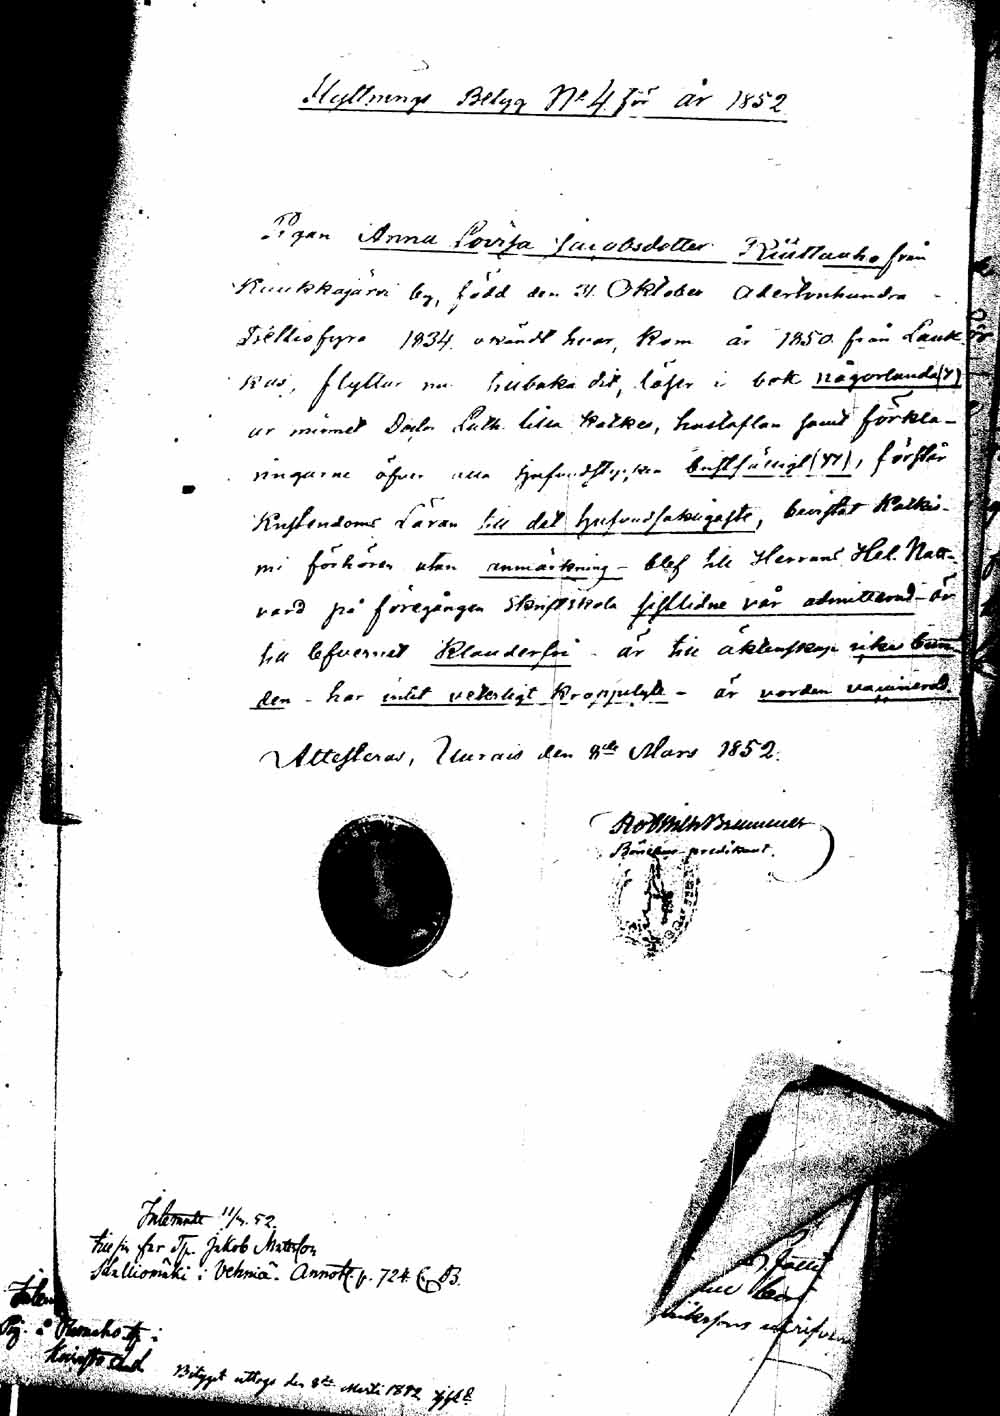 Flyttnings Betyg No 4 för år 1852
Pigan Anna Lovisa Jacobsdotter Riuttanho från
Kuukkajärvi by, född den 31 Oktober Adertonhundra
Trettiofyra 1834 okändt hvar, kom år 1850 från Lauk
kas, flyttar nu tillbaka dit, läser i bok någorlunda (7)
ur minnet Doctor Luth. lilla Katkes, hustaflan samt förkla-
ringarne öfver alla hufvudstycken bristfälligt (77), förstår
Kristendoms Läran till det hufvudsakligaste, bevistat Katkis-
mi förhören utan anmärkning - blef till Herrans Hel. Natt-
vard på föregången Skriftskola sistlidne vår admitterad - är
till lefvernet klanderfri - är till äktenskap icke bun-
den - har intet veterligt kroppslyte - är vorden vaccinerad.
Attesteras, Uurais den 8de Mars 1852.
Rob Wilh Brummer
predikant.
52.
far Jakob Matsson
i Vehniä. Annot. p. 724 C. B.
Betyget uttogs den 8de Martii 1852